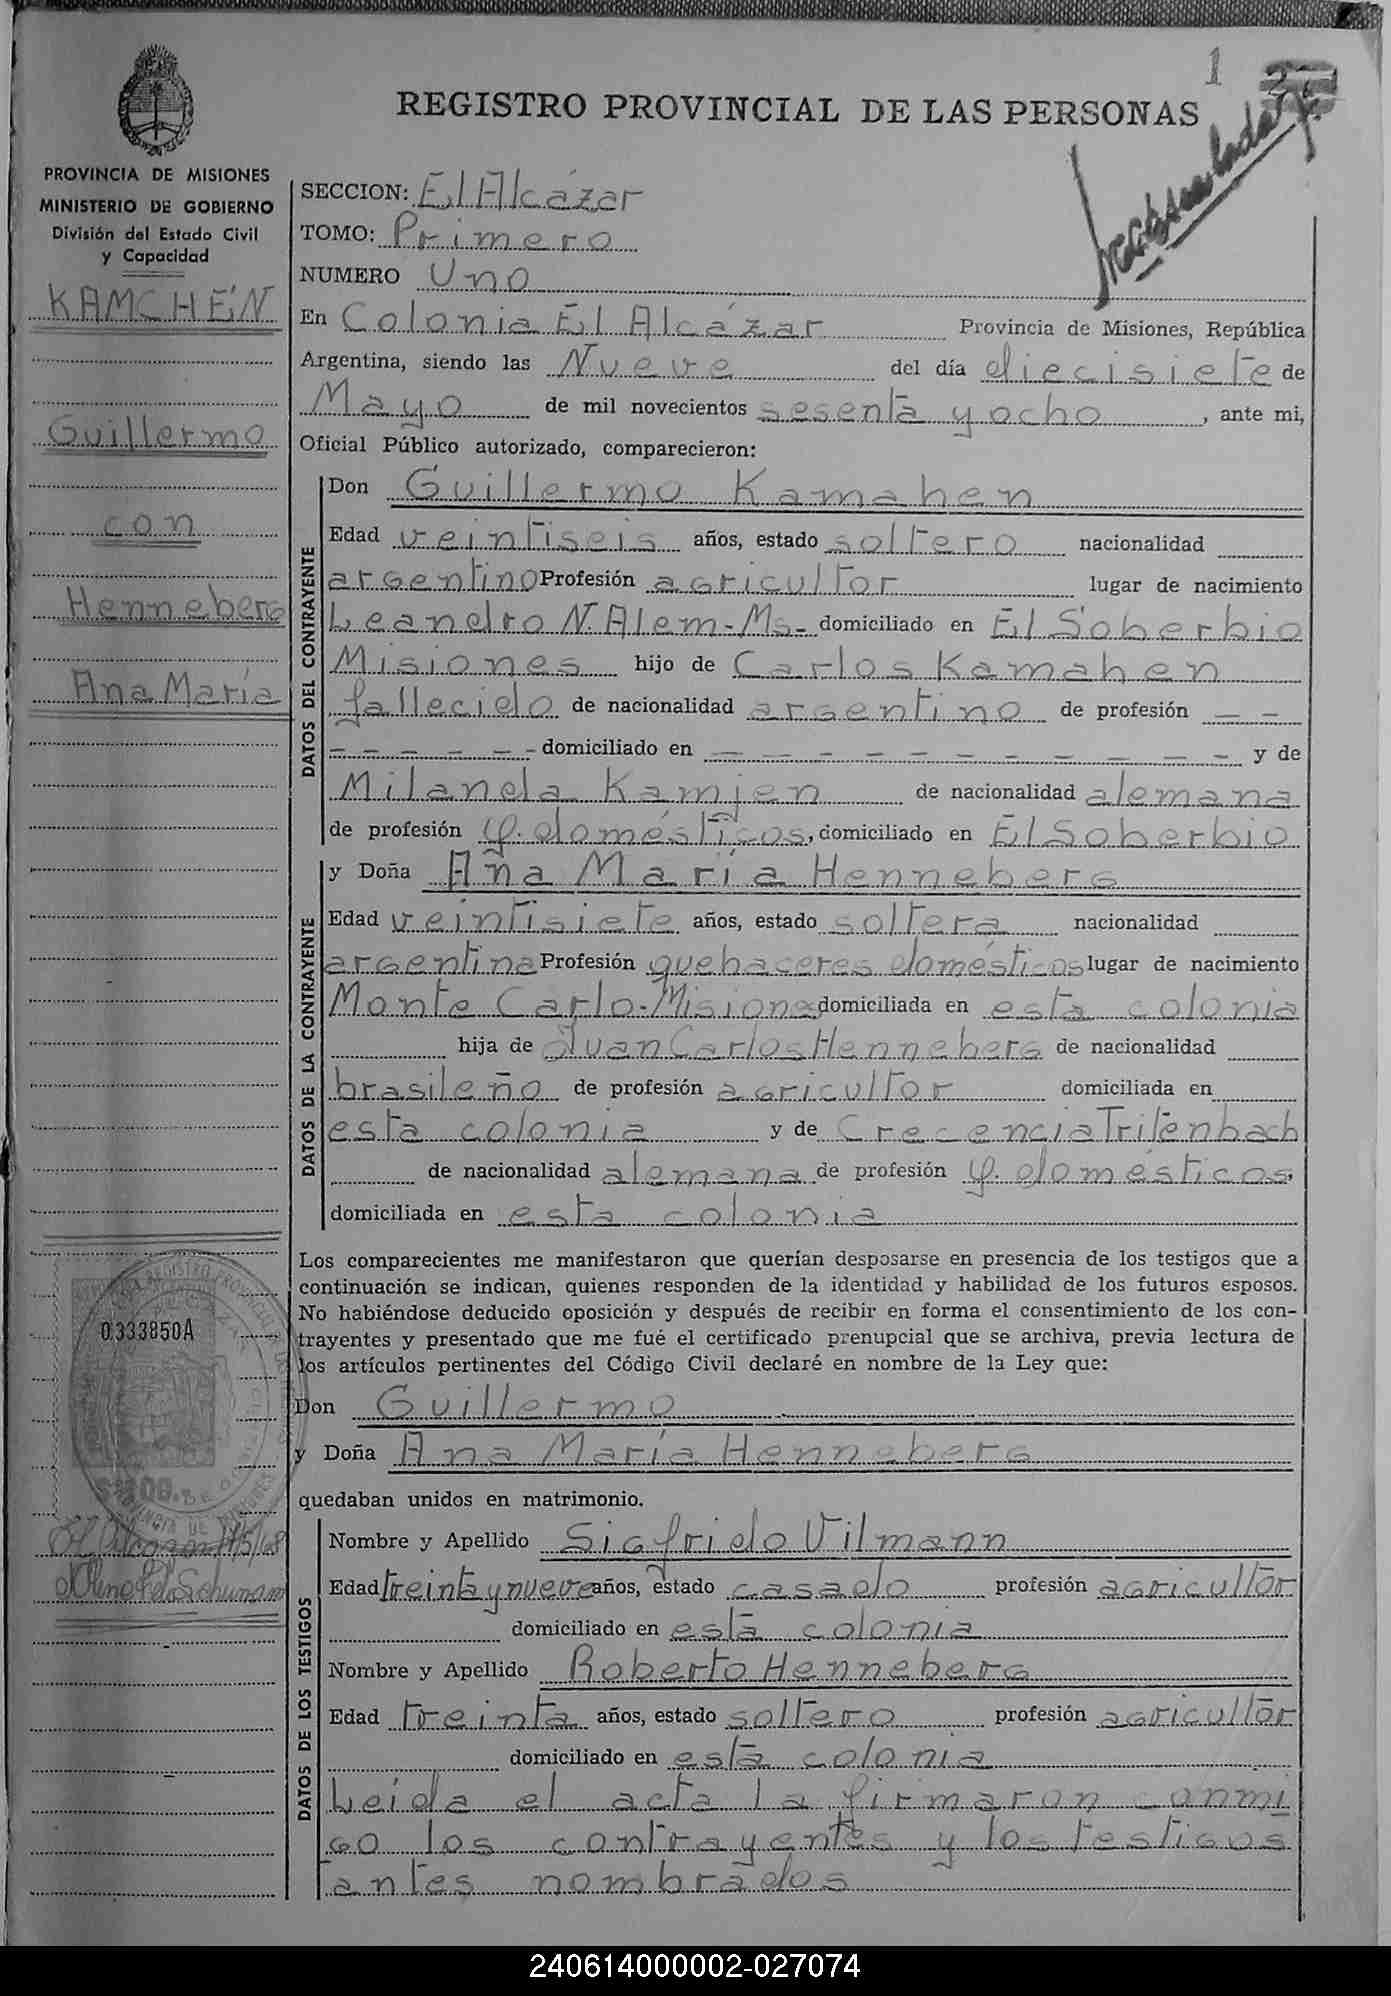 1
REGISTRO PROVINCIAL DE LAS PERSONAS
PROVINCIA DE MISIONES
MINISTERIO DE GOBIERNO
División del Estado Civil
y Capacidad
KAMCHEN
Guillermo
con
Henneberg
Ana María
0333850A
SECCION: El Alcázar
TOMO: Primero
NUMERO Uno
En Colonia El Alcázar Provincia de Misiones, República
Argentina, siendo las Nueve del día diecisiete de
Mayo de mil novecientos sesenta y ocho, ante mi,
Oficial Público autorizado, comparecieron:
DATOS DEL CONTRAYENTE
Don Guillermo Kamahen
Edad veintiseis años, estado soltero nacionalidad
argentino Profesión agricultor lugar de nacimiento
Leandro N. Alem-Ms- domiciliado en El Soberbio
Misiones hijo de Carlos Kamahen
fallecido de nacionalidad argentino de profesión – –
– – – – – – domiciliado en – – – – – – – – – – – y de
Milanda Kamjen de nacionalidad alemana
de profesión q. domésticos, domiciliado en El Soberbio
DATOS DE LA CONTRAYENTE
y Doña Ana María Henneberg
Edad veintisiete años, estado soltera nacionalidad
argentina Profesión quehaceres domésticos lugar de nacimiento
Monte Carlo-Misiones domiciliada en esta colonia
hija de Juan Carlos Henneberg de nacionalidad
brasileño de profesión agricultor domiciliada en
esta colonia y de Crecencia Tritenbach
de nacionalidad alemana de profesión q. domésticos,
domiciliada en esta colonia
Los comparecientes me manifestaron que querían desposarse en presencia de los testigos que a
continuación se indican, quienes responden de la identidad y habilidad de los futuros esposos.
No habiéndose deducido oposición y después de recibir en forma el consentimiento de los con-
trayentes y presentado que me fué el certificado prenupcial que se archiva, previa lectura de
los artículos pertinentes del Código Civil declaré en nombre de la Ley que:
Don Guillermo
y Doña Ana María Henneberg
quedaban unidos en matrimonio.
DATOS DE LOS TESTIGOS
Nombre y Apellido Sigfrido Vilmann
Edad treinta y nueve años, estado casado profesión agricultor
domiciliado en esta colonia
Nombre y Apellido Roberto Henneberg
Edad treinta años, estado soltero profesión agricultor
domiciliado en esta colonia
Leída el acta la firmaron conmi
go los contrayentes y los testigos
antes nombrados
240614000002-027074